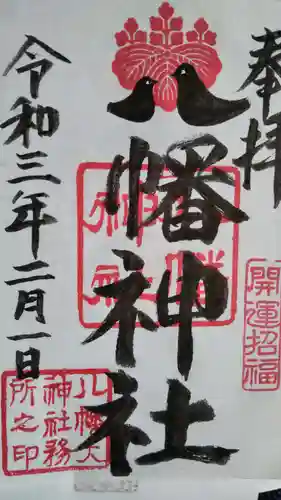 奉拝
八幡神社
令和三年二月一日
開運招福
八幡大
神社務
所之印